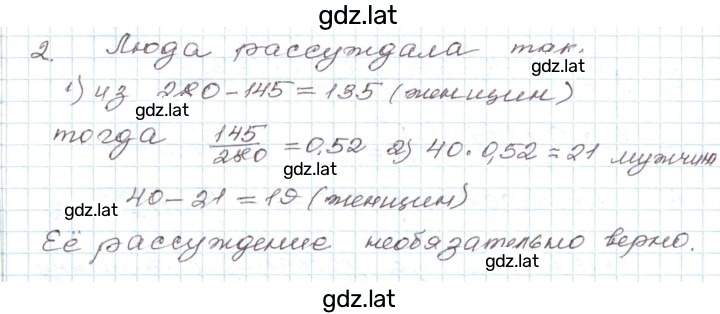 gdz.lat
2. Люда рассуждала так.
gdz.lat
1) из 280-145=135 (женщин)
gdz.lat
тогда 145/280 = 0,52 2) 40·0,52=21 мужчин
gdz.lat
40-21=19 (женщин)
gdz.lat
Её рассуждение необязательно верно.
gdz.lat
gdz.lat